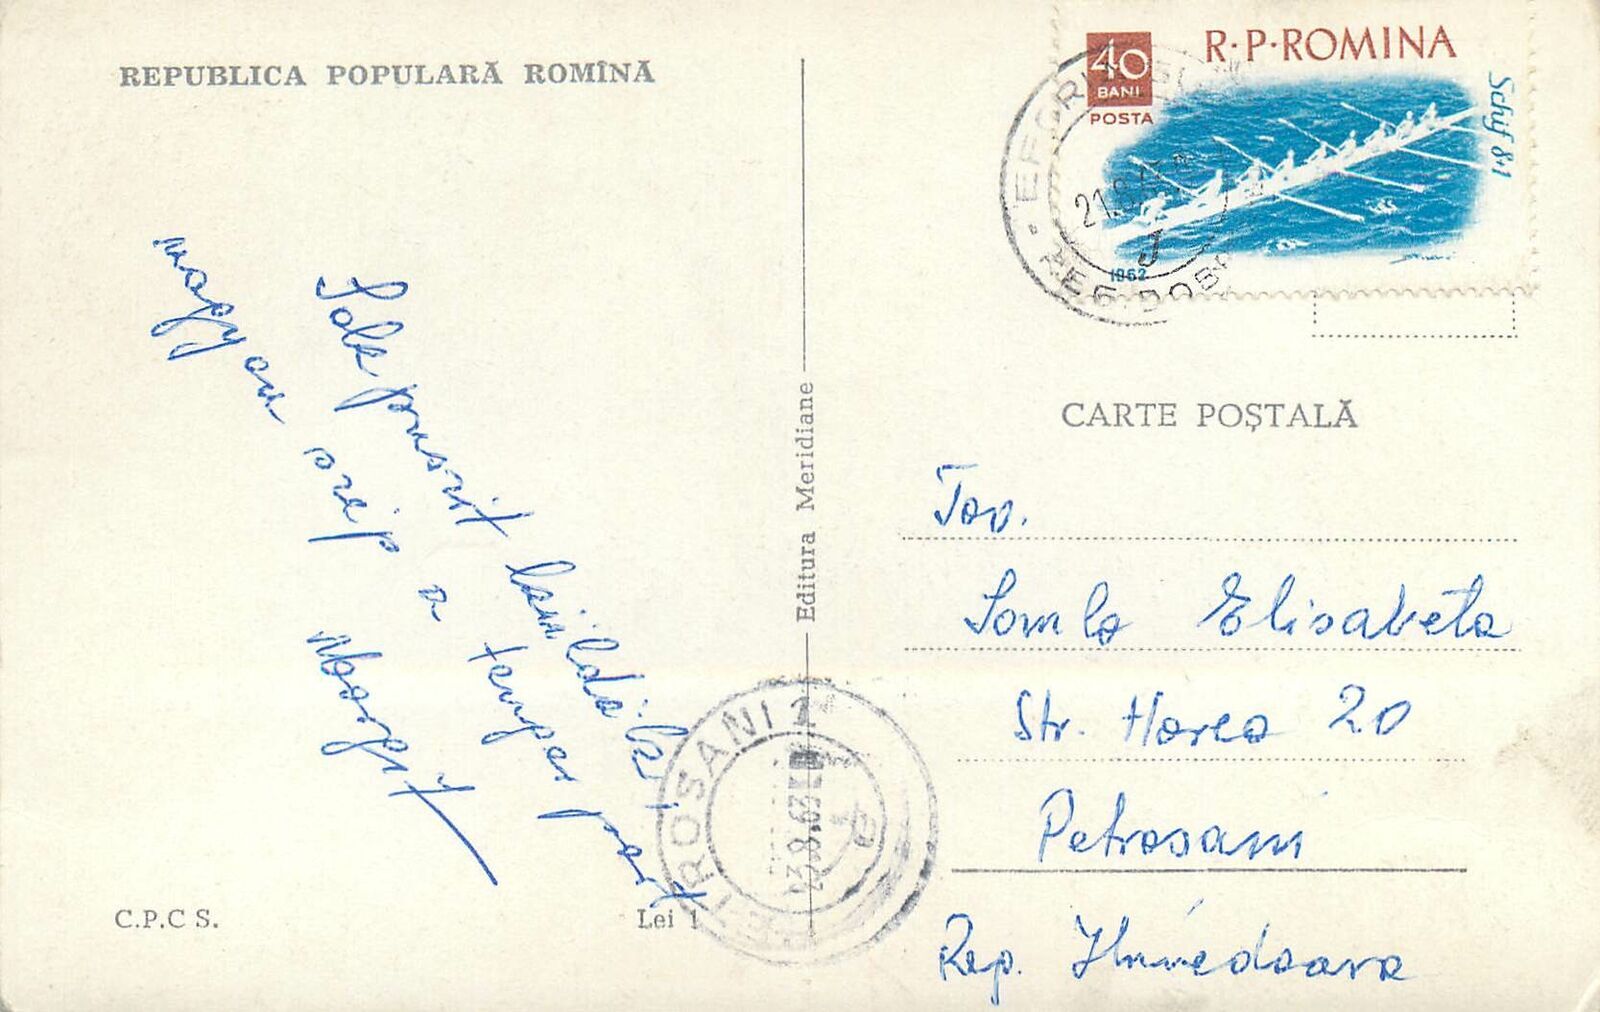 REPUBLICA POPULARĂ ROMÎNĂ
Sok puszit küldök,
nagyon szép a tenger part
Margit
C.P.C S.
Lei 1
Editura Meridiane
40
BANI
POSTA
R·P·ROMINA
Schif 8+1
1962
EFORIE
21.8.
REG. DOB
PETROSANI
23.8.63
CARTE POȘTALĂ
Tov.
Somlo Elisabeta
Str. Horea 20
Petrosani
Reg. Hunedoara